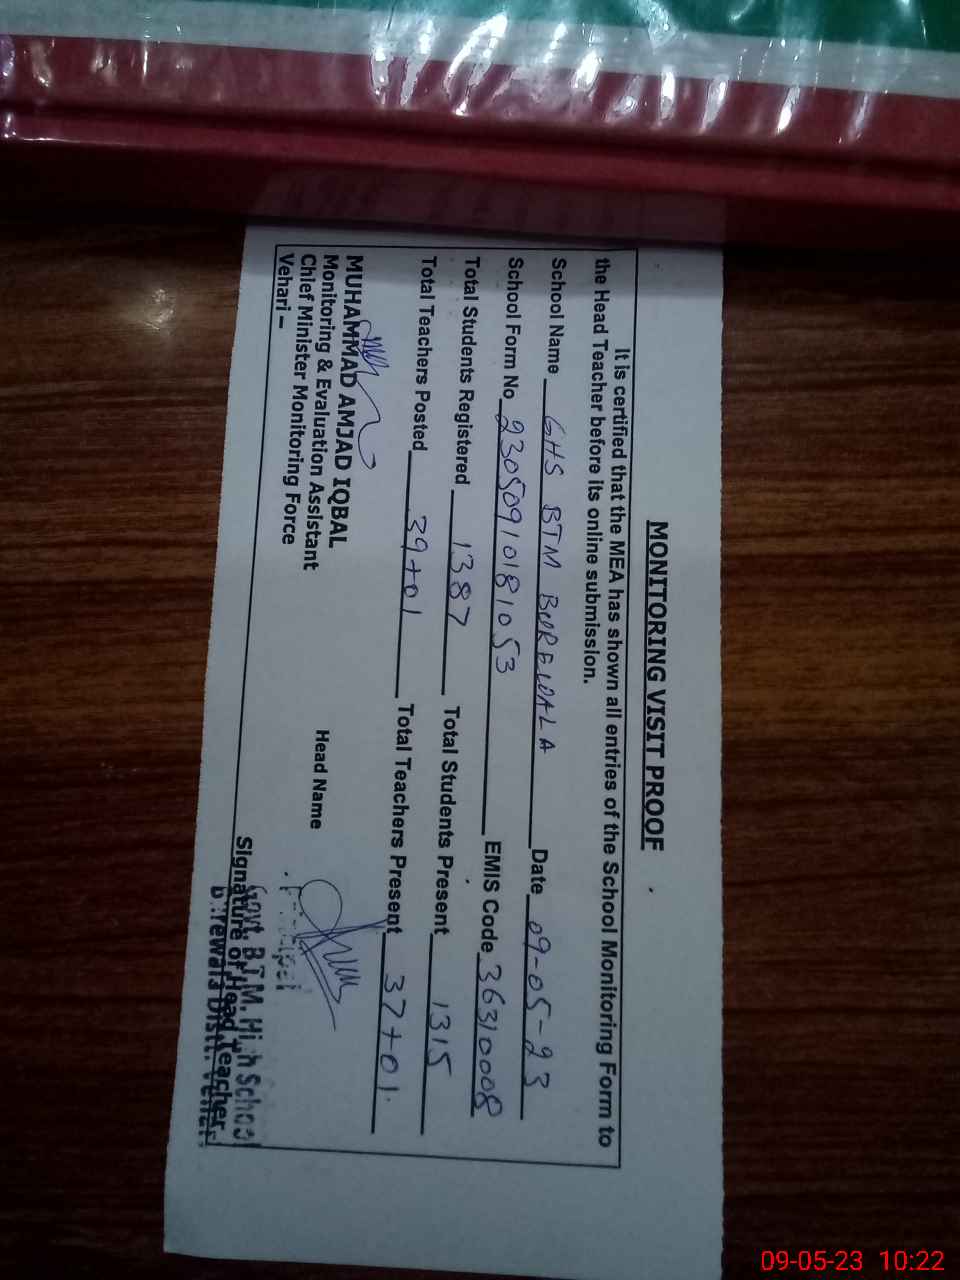 MONITORING VISIT PROOF
It is certified that the MEA has shown all entries of the School Monitoring Form to
the Head Teacher before its online submission.
School Name GHS BTM BUREWALA Date 09-05-23
School Form No 23050910181053 EMIS Code 36310008
Total Students Registered 1387 Total Students Present 1315
Total Teachers Posted 39+01 Total Teachers Present 37+01
MUHAMMAD AMJAD IQBAL
Monitoring & Evaluation Assistant
Chief Minister Monitoring Force
Vehari –
Head Name
Signature of Head Teacher
Principal
Govt. B.T.M. High School
Burewala Distt. Vehari
09-05-23 10:22